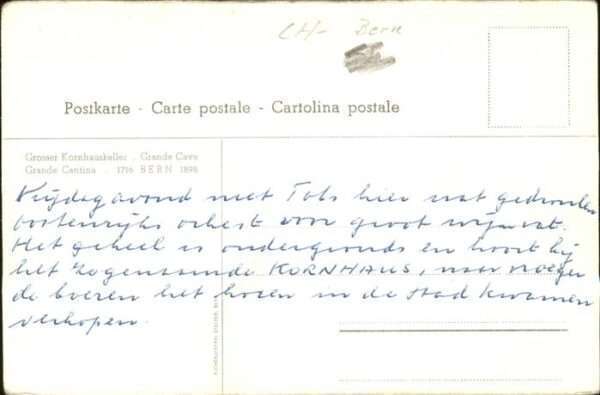 CH- Bern
Postkarte - Carte postale - Cartolina postale
Grosser Kornhauskeller . Grande Cave
Grande Cantina . 1716 BERN 1898
Vrijdagavond met Tobs hier wat gedronken
oostenrijks orkest voor groot wijnvat.
Het geheel is ondergronds en hoort bij
het zogenaamde KORNHAUS, waar vroeger
de boeren het koren in de stad kwamen
verkopen.